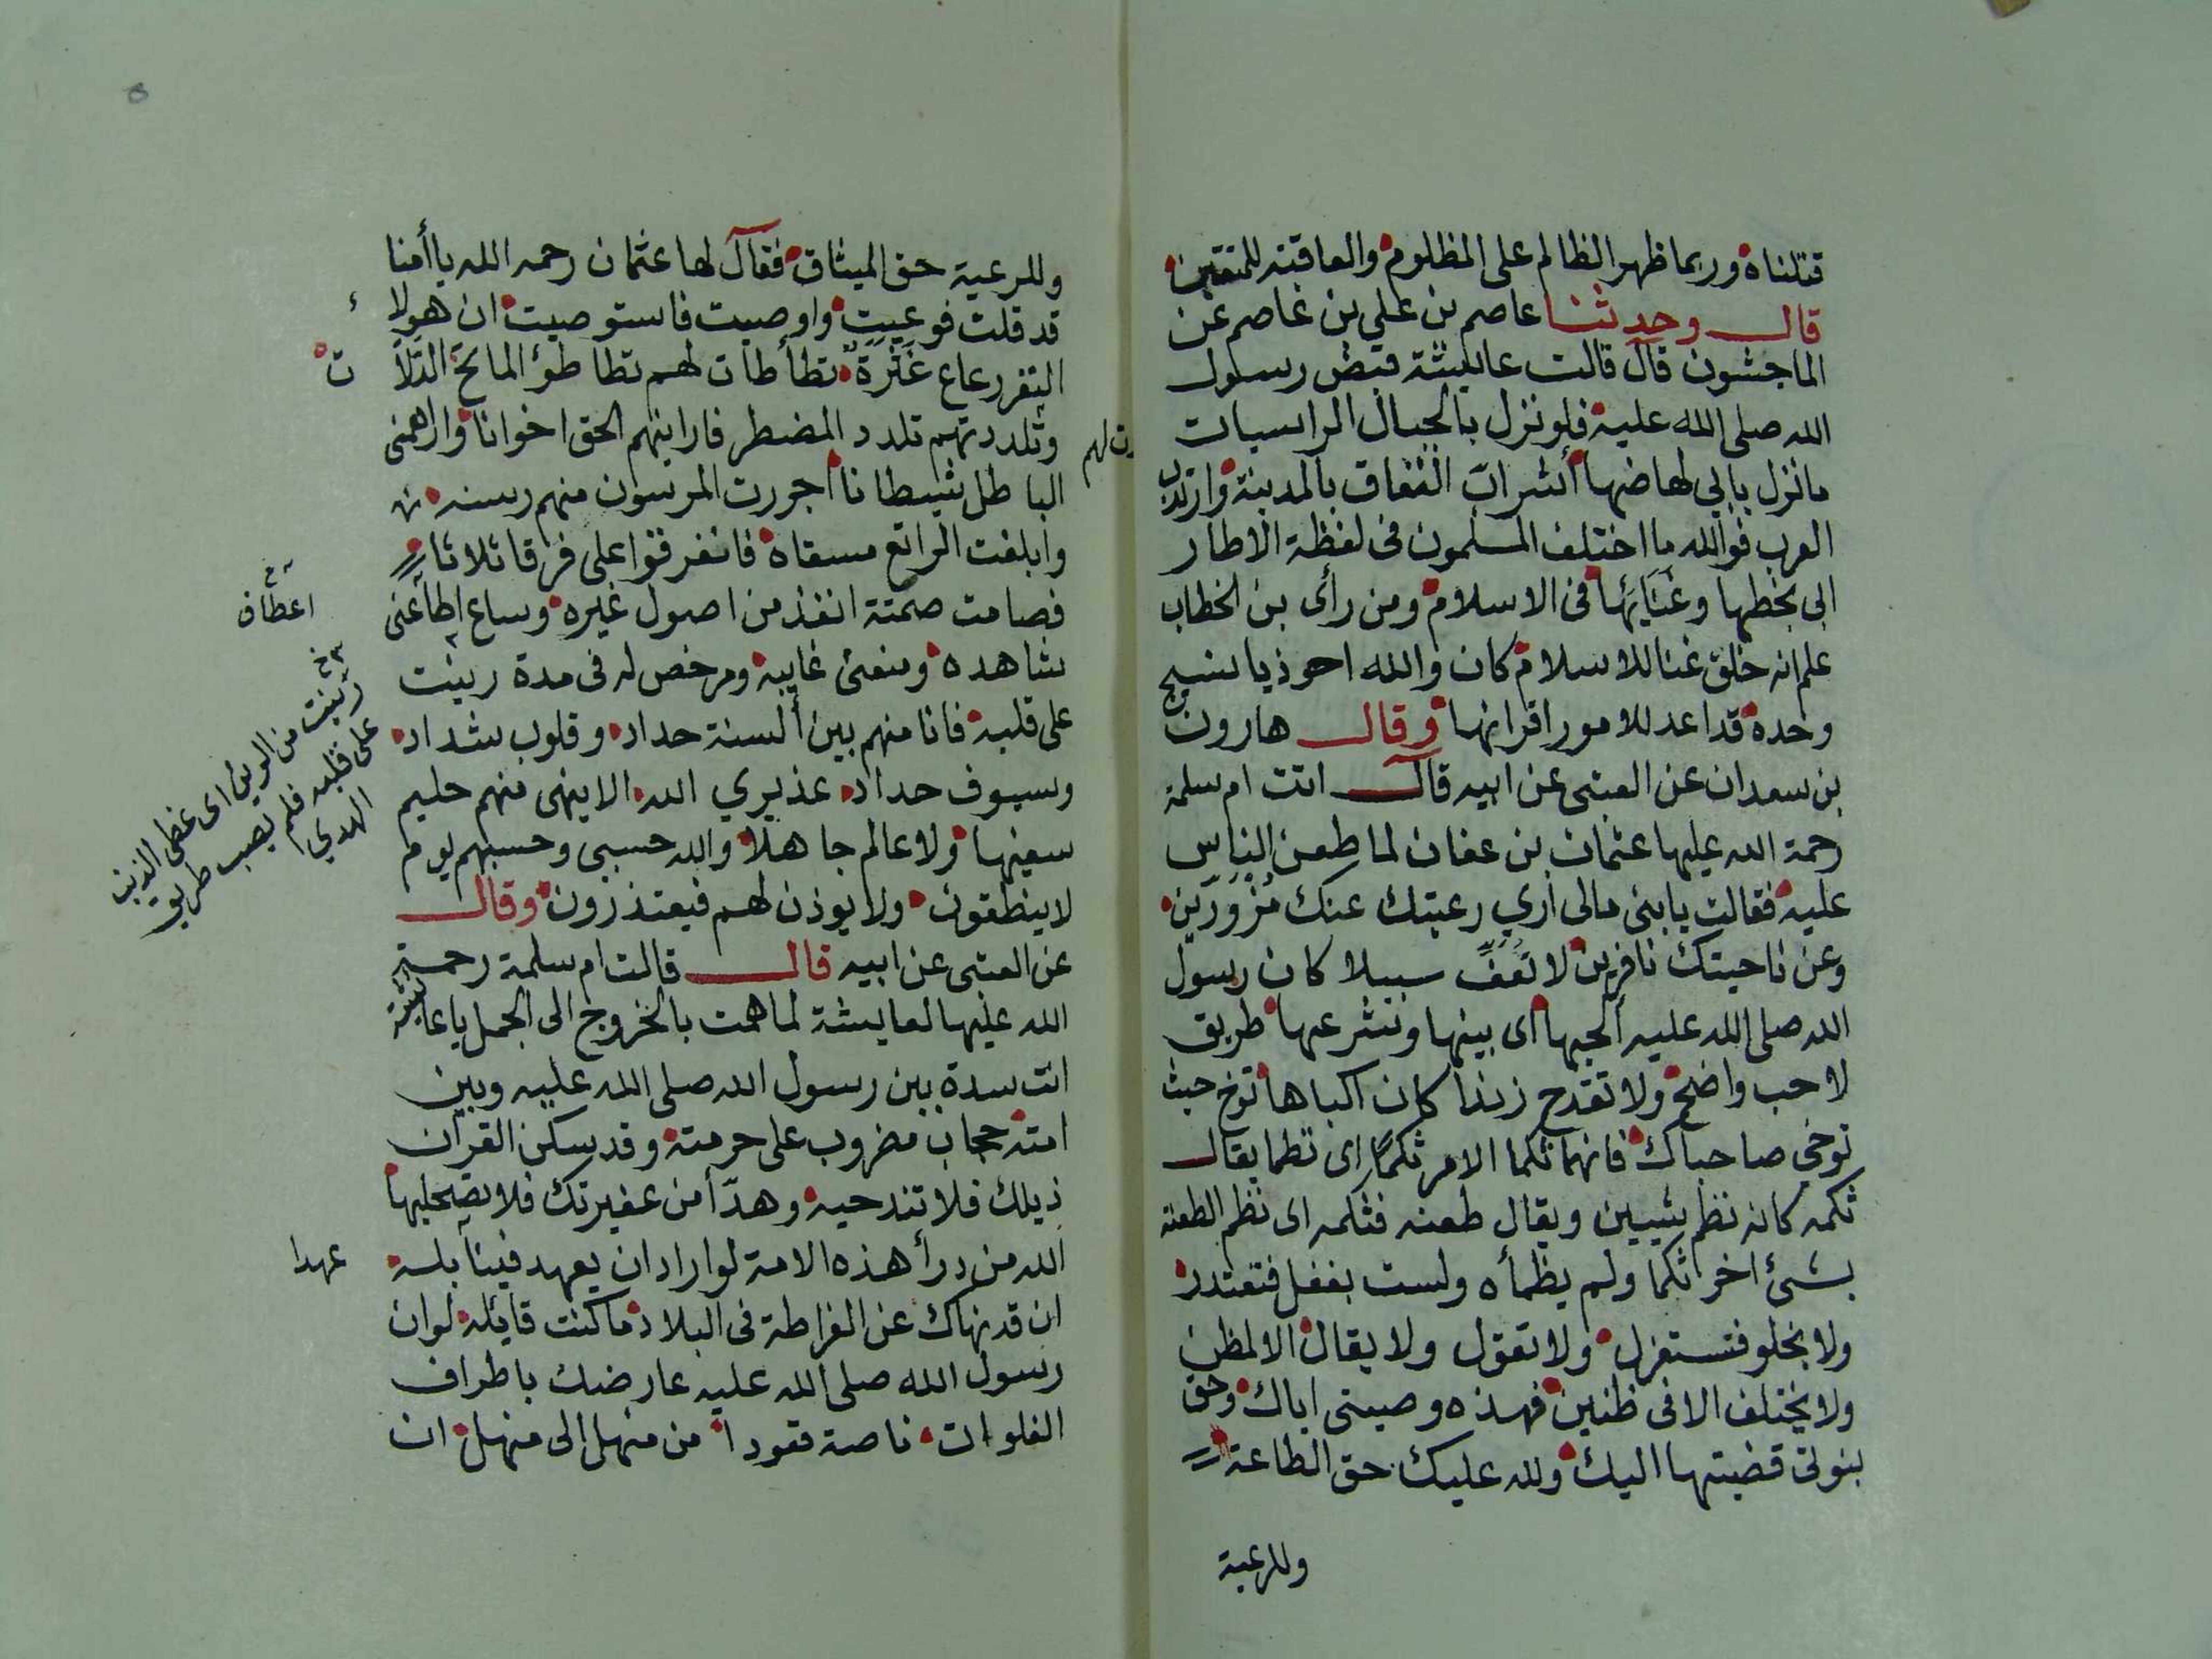 قتلناه وربما ظهر الظالم على المظلوم والعاقبة للمتقين
قال وحدثنا عاصم بن علي بن عاصم عن
الماجشون قال قالت عايشة قبض رسول
الله صلى الله عليه فلو نزل بالجبال الراسيات
ما نزل بابي لهاضها أشراب النفاق بالمدينة وارتدت
العرب فوالله ما اختلف المسلمون فى لفظة الاطار
ابى بخطها وغنايها فى الاسلام ومن رأى بن الخطاب
علم انه خلق غنا للاسلام كان والله احوذيا نسيج
وحده قد اعد للامور اقرانها وقال هارون
بن سعدان عن العتبى عن ابيه قال اتت ام سلمة
رحمة الله عليها عثمان بن عفان لما طعن الناس
عليه فقالت يا بنى مالى ارى رعيتك عنك مزورين
وعن ناحيتك نافرين لا تعف سبيلا كان رسول
الله صلى الله عليه ألحبها اى بينها ونشر عها طريق
لاحب واضح ولا تقدح زندا كان اكباها توخ حيث
توخى صاحباك فانهما ثكما الامر ثكما اى نظما يقال
ثكمه كانه نظم بشيين ويقال طعنه فثكمه اى نظم الطعنة
بشئ اخر ثكما ولم يظمأه ولست بغفل فتعتذر
ولا بخلو فتستغزل ولا تقول ولا يقال الا لمظن
ولا يختلف الا فى ظنين فهذه وصيتى اياك وحق
بنوتى قضيتها اليك ولله عليك حق الطاعة
وللرعية
وللرعية حق الميثاق فقال لها عثمان رحمه الله يا أمنا
قد قلت فوعيت واوصيت فاستوصيت ان هولا
النفر رعاع غثرة تطأطات لهم تطاطؤ الماتح الدلا
وتلددتهم تلدد المضطر فارانيهم الحق اخوانا واراهمنى
الباطل شيطانا اجررت المرسون منهم رسنه
وابلغت الراتع مسقاه فانفرقوا على فرقا ثلاثا
فصامت صمته انفذ من اصول غيره وساع اعطانى
شاهده ومنعنى غايبه ومرخص له فى مدة رينت
على قلبه فانا منهم بين ألسنة حداد وقلوب شداد
وسيوف حداد عذيري الله الا ينهى منهم حليم
سفيها ولا عالم جاهلا والله حسبى وحسبهم يوم
لا ينطقون ولا يوذن لهم فيعتذرون وقال
عن العتبى عن ابيه قال قالت ام سلمة رحمة
الله عليها لعايشة لما همت بالخروج الى الجمل يا عايشة
انت سدة بين رسول الله صلى الله عليه وبين
امته حجاب مضروب على حرمته وقد سكن القران
ذيلك فلا تندحيه وهدأ من عفيرتك فلا تصحليها
الله من درأ هذه الامة لو اراد ان يعهد فينا بلسه
ان قد نهاك عن الفراطة فى البلاد ما كنت قايله لو ان
رسول الله صلى الله عليه عارضك باطراف
الفلوات ناصة قعودا من منهل الى منهل ان
ت لهم
اعطاف
رينت من الرين اى غطى الذنب
على قلبه فلم يصب طريق
الهدي
عهدا